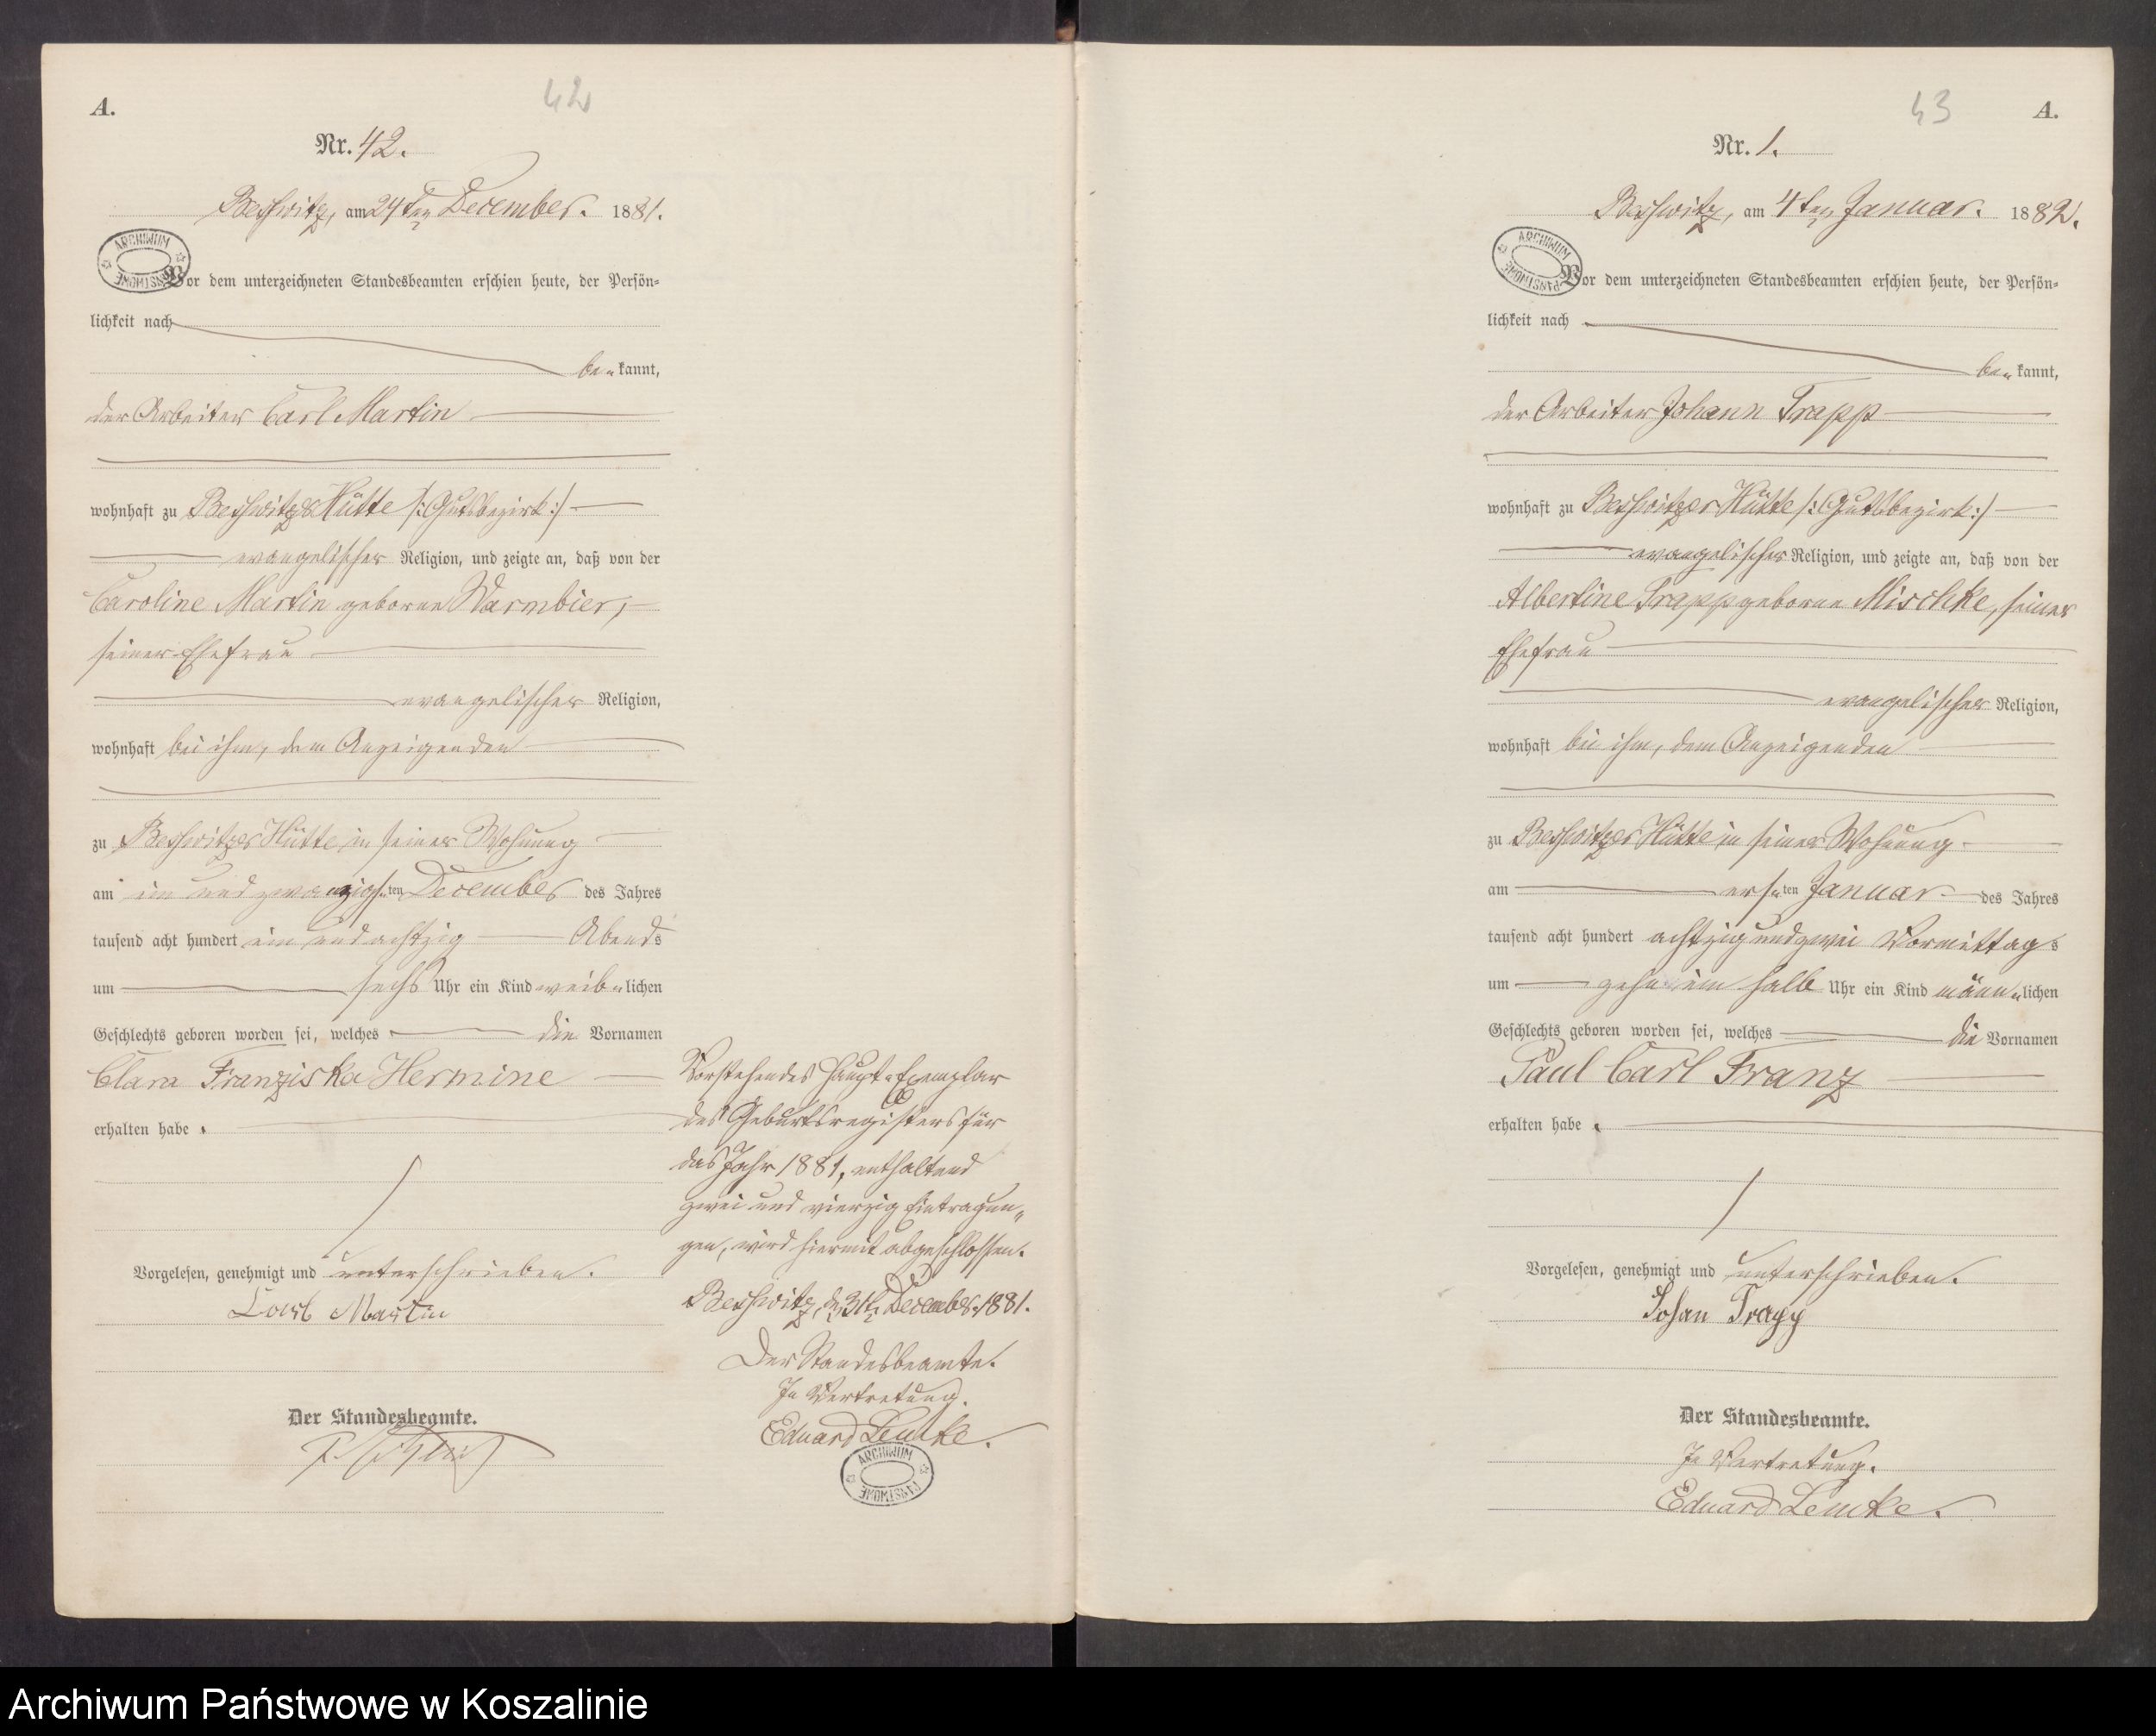 42
A.
Nr. 42.
Beßwitz, am 24ten December. 1881.
ARCHIWUM PAŃSTWOWE
Vor dem unterzeichneten Standesbeamten erschien heute, der Persön-
lichkeit nach
be„kannt,
der Arbeiter Carl Martin
wohnhaft zu Beßwitzer Hütte /:Gutsbezirk:/
evangelischer Religion, und zeigte an, daß von der
Caroline Martin geborne Warmbier,
seiner Ehefrau
evangelischer Religion,
wohnhaft bei ihm, dem Anzeigenden
zu Beßwitzer Hütte in seiner Wohnung
am ein und zwanzigsten December des Jahres
tausend acht hundert ein und achtzig Abends
um sechs Uhr ein Kind weib„lichen
Geschlechts geboren worden sei, welches die Vornamen
Clara Franziska Hermine
erhalten habe.
Vorgelesen, genehmigt und unterschrieben.
Carl Martin
Der Standesbeamte.
Vorstehendes Haupt-Exemplar
des Geburtsregisters für
das Jahr 1881, enthaltend
zwei und vierzig Eintragun„
gen, wird hiermit abgeschlossen.
Beßwitz, den 31ten December 1881.
Der Standesbeamte.
In Vertretung.
Eduard Lemke.
ARCHIWUM PAŃSTWOWE
43
A.
Nr. 1.
Beßwitz, am 4ten Januar. 1882.
ARCHIWUM PAŃSTWOWE
Vor dem unterzeichneten Standesbeamten erschien heute, der Persön-
lichkeit nach
be„kannt,
der Arbeiter Johann Trapp
wohnhaft zu Beßwitzer Hütte /:Gutsbezirk:/
evangelischer Religion, und zeigte an, daß von der
Albertine Trapp geborne Mischke, seiner
Ehefrau
evangelischer Religion,
wohnhaft bei ihm, dem Anzeigenden
zu Beßwitzer Hütte in seiner Wohnung
am ersten Januar des Jahres
tausend acht hundert achtzig und zwei Vormittags
um zehn ein halb Uhr ein Kind männ„lichen
Geschlechts geboren worden sei, welches die Vornamen
Paul Carl Franz
erhalten habe.
Vorgelesen, genehmigt und unterschrieben.
Johan Trapp
Der Standesbeamte.
In Vertretung.
Eduard Lemke.
Archiwum Państwowe w Koszalinie